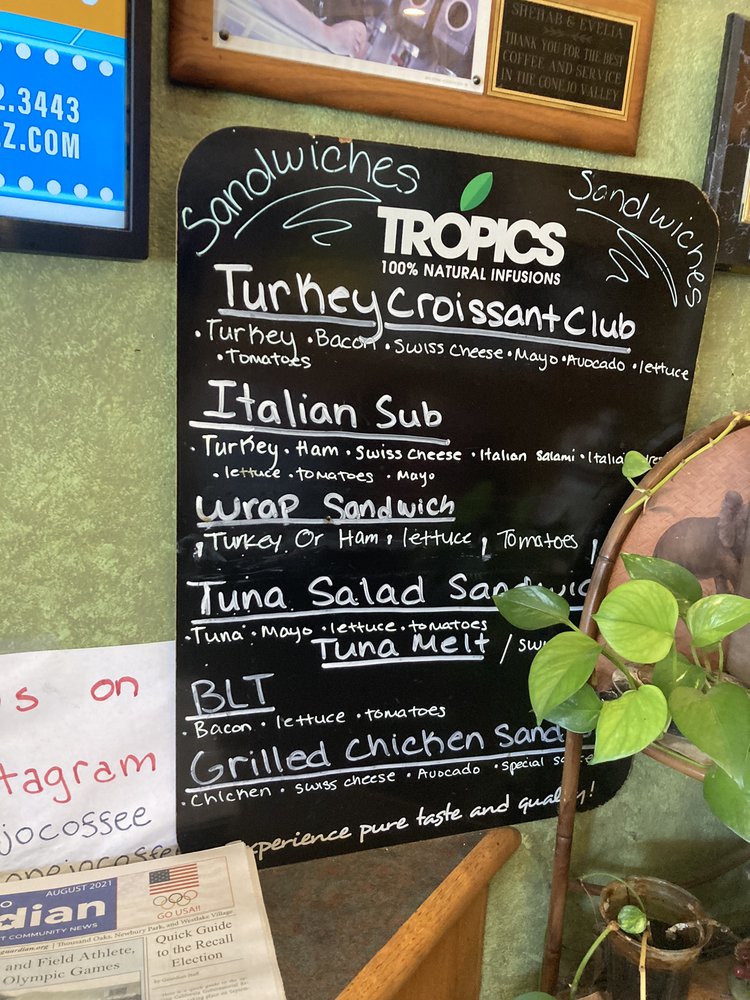 2.3443
Z.COM
SHEHAB & EVELIA
THANK YOU FOR THE BEST
COFFEE AND SERVICE
IN THE CONEJO VALLEY
Sandwiches
Sandwiches
TROPICS
100% NATURAL INFUSIONS
Turkey Croissant Club
• Turkey • Bacon • Swiss cheese • Mayo • Avocado • lettuce
• Tomatoes
Italian Sub
• Turkey • Ham • Swiss cheese • Italian Salami • Italia
• lettuce • tomatoes • Mayo
Wrap Sandwich
Turkey Or Ham, lettuce, Tomatoes,
Tuna Salad Sandwic
• Tuna • Mayo • lettuce • tomatoes
Tuna Melt / sw
BLT
• Bacon • lettuce • tomatoes
Grilled chicken Sand
• Chicken • swiss cheese • Avocado • special sauce
xperience pure taste and quality!
s on
tagram
jocossee
onejocoffe
AUGUST 2021
dian
T COMMUNITY NEWS
GO USA!!
guardian.org | Thousand Oaks, Newbury Park, and Westlake Village
and Field Athlete,
Olympic Games
Quick Guide
to the Recall
Election